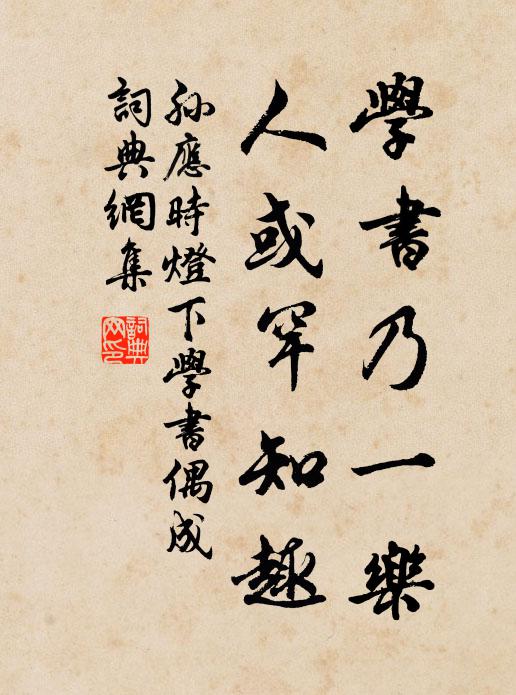 學書乃一樂
人或罕知趣
孙應時燈下學書偶成
詞典網集
詞典网印